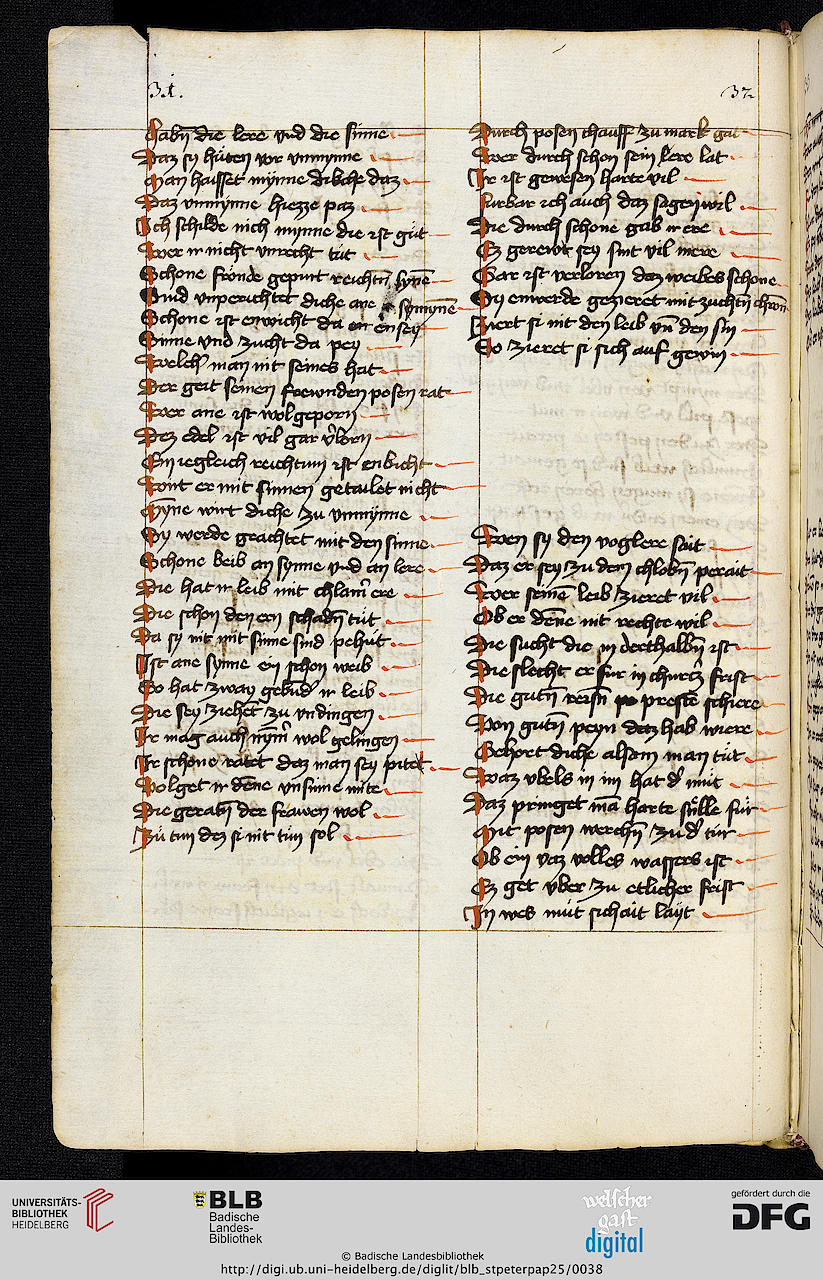 31.
Habñ die lere vnd die sinne
Daz sy hüten vor vnmynne
Man haisset mynne diche daz
Daz vnmynne hiezze paz
Ich schilde nich mynne die ist güt
Wer ir nicht vnrecht tüt
Schone fronde gepurt reichtũ synẽ
Vnd vnperichtet diche ane synnne
Schone ist enwicht da en ensey
Sinne vnd zucht da pey
Welchˀ man nit seines hat
Der geit seinen frewnden posen rat
Wer ane ist wolgeporn
Dez edel ist vil gar vˀlorn
Ein iegleich reichtum ist enbicht
Wirt er mit sinnen getailet nicht
Mȳne wirt diche zu vnmynne
Sy werde geachtet mit den sinne
Schone beib an synne vnd an lere
Die hat ir leib mit chlainˀ ere
Die schon den ern schadñ tüt
Da sy nit mit sinne sind pehüt
Ist ane synne ein schon weib
So hat zway gebũdˀ ir leib
Die sey ziehet zu vndingen
Ir mag auch nymˀ wol gelingen
Ir schone ratet daz man sey pitet
Volget ir dẽne vnsinne mite
Die geratñ der frawen wol
Zü tun dez si nit tün sol
32
Durch posen chauff zu mark gat
Wer durch schon sein lere lat
Ir ist gewesen harte vil
Furbar ich auch daz sagen wil
Die durch schone gab ir ere
Ez gerewt sey sint vil mere
Gar ist verloren daz weibes schone
Sy enwerde gezieret mit zuchtñ chron
Ziert si nit den leib vñ den sin
So zieret si sich auf gewin
Wen sy den voglere sait
Daz er sey zu dem chlobñ perait
Wer seinẽ leib zieret vil
Ob er dẽne nit rechte wil
Die sucht die in derthalbñ ist
Die slecht er fur in churczˀ frist
Die gutñ reisñ preste schiere
Von gutñ peyn daz hab wiere
Gehort diche alsam man tüt
Waz vbels in im hat dˀ müt
Daz pringet mã harte snelle für
Mit posen werchñ zu dˀ tür
Ob ein vaz volles wassers ist
Ez get vber zu etlicher frist
In wes müt sichait layt
UNIVERSITÄTS-
BIBLIOTHEK
HEIDELBERG
BLB
Badische
Landes-
Bibliothek
welscher
gast
digital
gefördert durch die
DFG
© Badische Landesbibliothek
http://digi.ub.uni-heidelberg.de/diglit/blb_stpeterpap25/0038